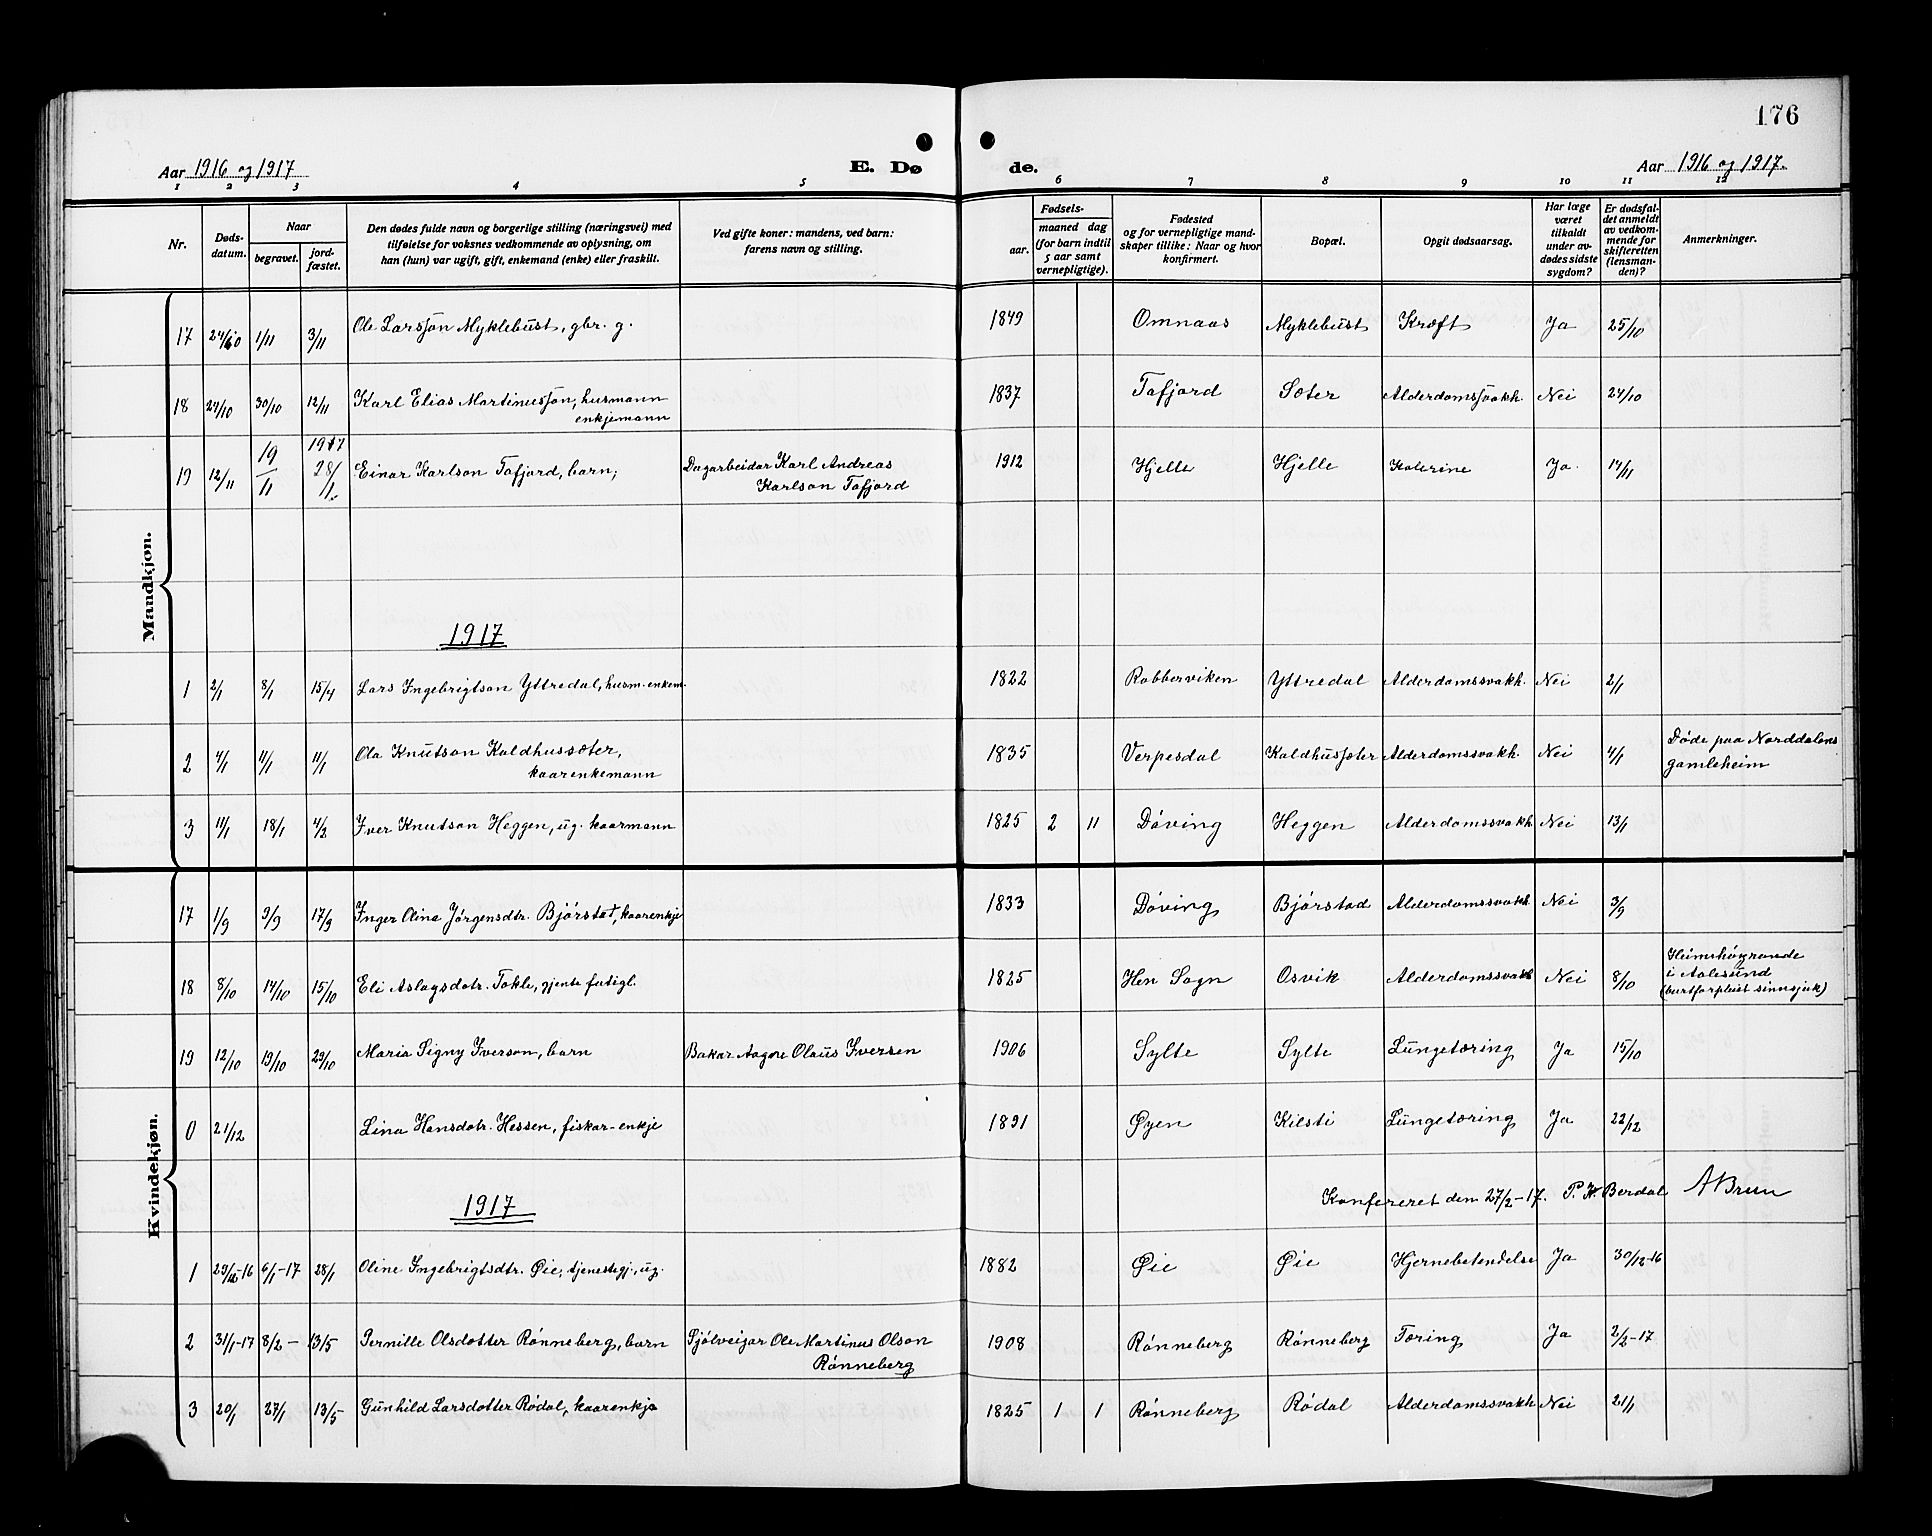 176
Aar 1916 og 1917
E. Dø
de.
Aar 1916 og 1917.
1 2 3 4 5 6 7 8 9 10 11 12
Nr.
Døds-
datum.
Naar
begravet.
jord-
fæstet.
Den dødes fulde navn og borgerlige stilling (næringsvei) med
tilføielse for voksnes vedkommende av oplysning, om
han (hun) var ugift, gift, enkemand (enke) eller fraskilt.
Ved gifte koner: mandens, ved barn:
farens navn og stilling.
Fødsels-
aar.
maaned dag
(for barn indtil
5 aar samt
vernepligtige).
Fødested
og for vernepligtige mand-
skaper tillike: Naar og hvor
konfirmert.
Bopæl.
Opgit dødsaarsag.
Har læge
været
tilkaldt
under av-
dødes sidste
sygdom?
Er dødsfal-
det anmeldt
av vedkom-
mende for
skifteretten
(lensman-
den)?
Anmerkninger.
Mandkjøn.
17 24/10 1/11 3/11 Ole Larssøn Myklebust, gbr. g. 1849 Omnaas Myklebust Kræft Ja 25/10
18 24/10 30/10 12/11 Karl Elias Martinussøn, husmann
enkjemann 1837 Tafjord Sæter Alderdomssvakh. Nei 24/10
19 12/11 19/11 1917 28/1. Einar Karlson Tafjord, barn, Dagarbeidar Karl Andreas
Karlson Tafjord 1912 Hjelle Hjelle Ja. 14/11
1917
1 2/1 8/1 15/4 Lars Ingebrigtson Yttredal, husm. enkem. 1822 Robberviken Yttredal Alderdomssvakh. Nei 2/1
2 4/1 11/1 11/1 Ola Knutson Kaldhussæter,
kaarenkemann 1835 Verpesdal Kaldhussæter Alderdomssvakh. Nei 4/1 Døde paa Norddalens
gamleheim
3 11/1 18/1 4/2 Iver Knutson Heggen, ug. kaarmann 1825 2 11 Døving Heggen Alderdomssvakh Nei 13/1
Kvindekjøn.
17 1/9 9/9 17/9 Inger Olina Jørgensdtr. Bjørstad, kaarenkje 1833 Døving Bjørstad Alderdomssvakh Nei 3/9
18 8/10 14/10 15/10 Eli Aslagsdotr. Tokle, gjente fatigl. 1825 Hen Sogn Osvik Alderdomssvakh Nei 8/10 Heimehøyrande
i Aalesund
(burtforpleiet sinnsjuk)
19 12/10 19/10 29/10 Maria Signy Iverson, barn Bakar Aagore Olaus Iversen 1906 Sylte Sylte Lungetæring Ja 15/10
0 21/12 Lina Hansdotr. Hessen, fiskar-enkje 1891 Øyen Kilsti Lungetæring Ja 22/12
1917
Konfereret den 27/2-17. P. K. Berdal ABruun
1 29/12-16 6/1-17 28/1 Oline Ingebrigtsdtr. Øie, tjenestegj., ug. 1882 Øie Øie Hjernebetendelse Ja 30/12-16
2 31/1-17 8/2- 13/5 Pernille Olsdotter Rønneberg, barn Sjølveigar Ole Martinus Olson
Rønneberg 1908 Rønneberg Rønneberg Tæring Ja 2/2-17
3 20/1 27/1 13/5 Gunhild Larsdotter Rødal, kaarenkje 1825 1 1 Rønneberg Rødal Alderdomssvakh Nei 21/1